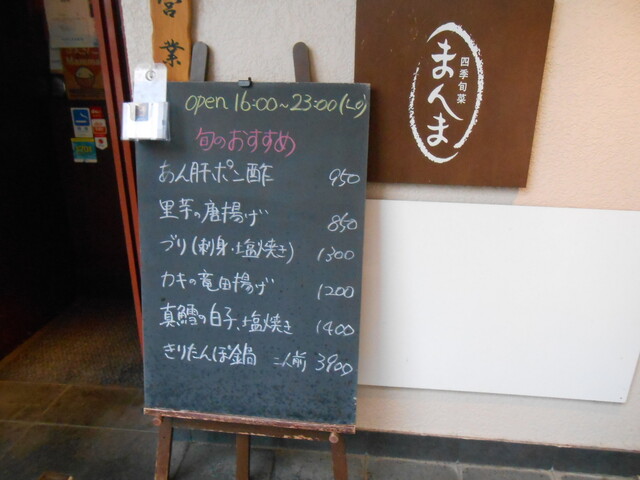 営業
四季旬菜
まんま
open 16:00~23:00(Lo)
旬のおすすめ
あん肝ポン酢 950
里芋の唐揚げ 850
ブリ(刺身・塩焼き) 1300
カキの竜田揚げ 1200
真鱈の白子、塩焼き 1400
きりたんぽ鍋 二人前 3900